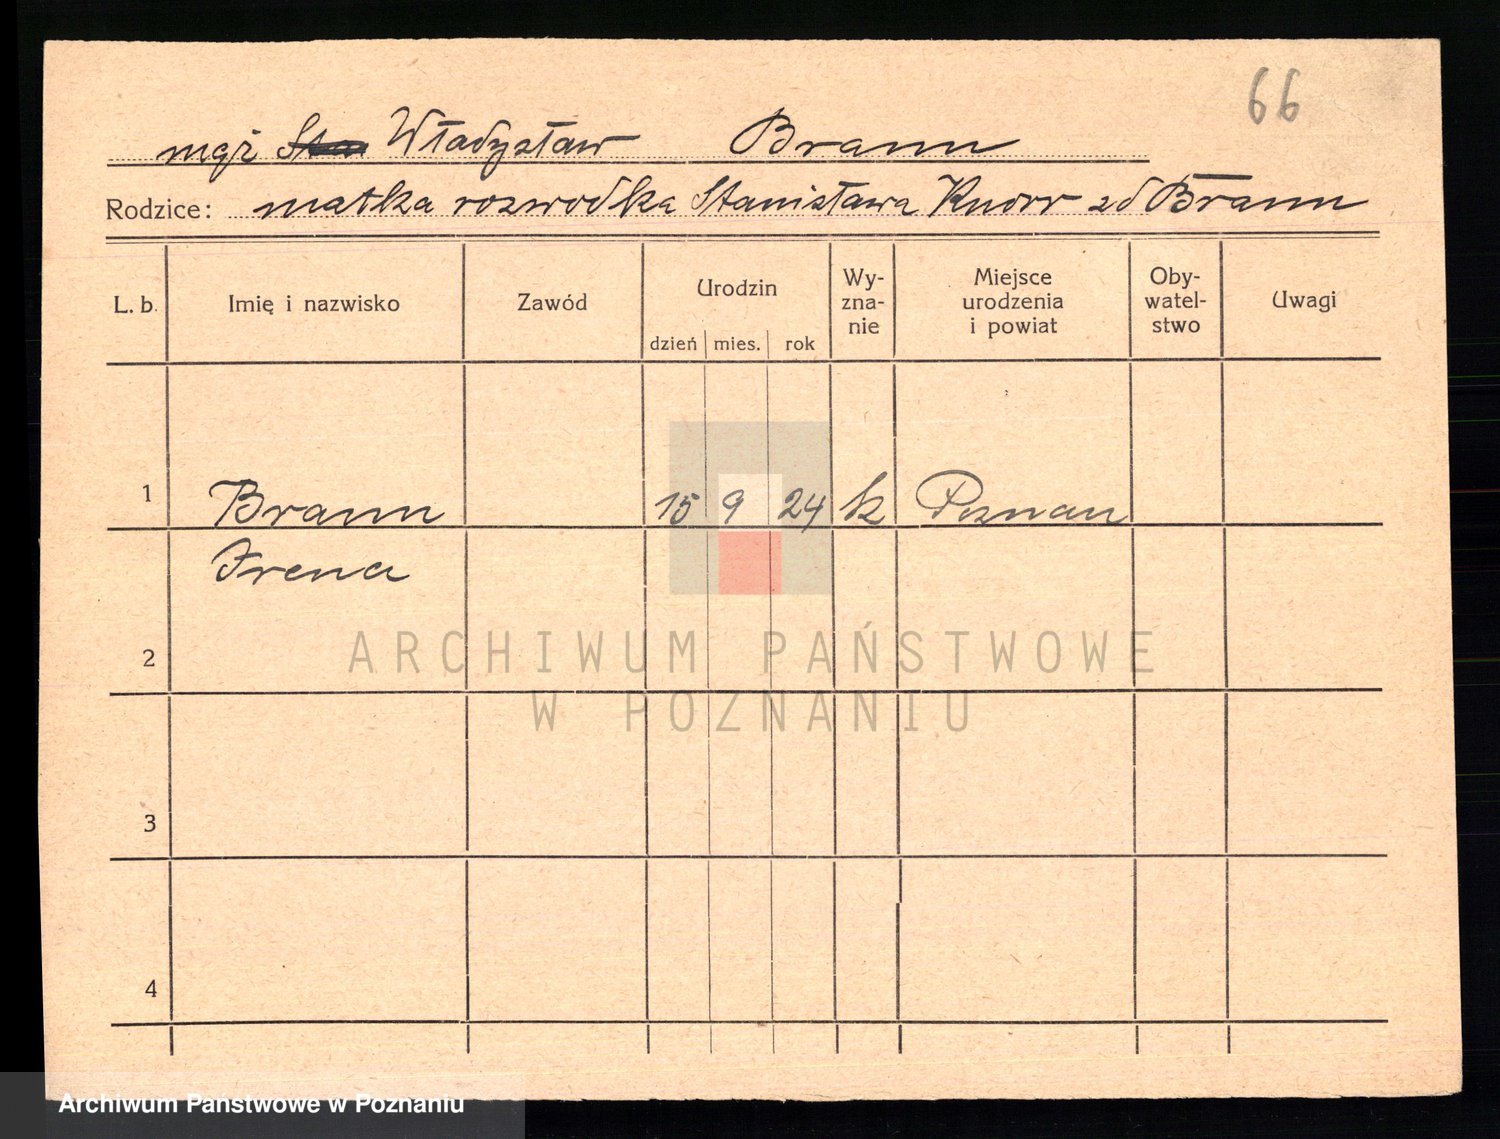 66
mąż Władysław Braun
Rodzice: matka rozwodka Stanisława Knorr zd Braun
L. b. Imię i nazwisko Zawód Urodzin dzień mies. rok Wy-zna-nie Miejsce urodzenia i powiat Oby-watel-stwo Uwagi
1 Braun 15 9 24 k Poznan
Irena
2
ARCHIWUM PAŃSTWOWE
W POZNANIU
3
4
Archiwum Państwowe w Poznaniu